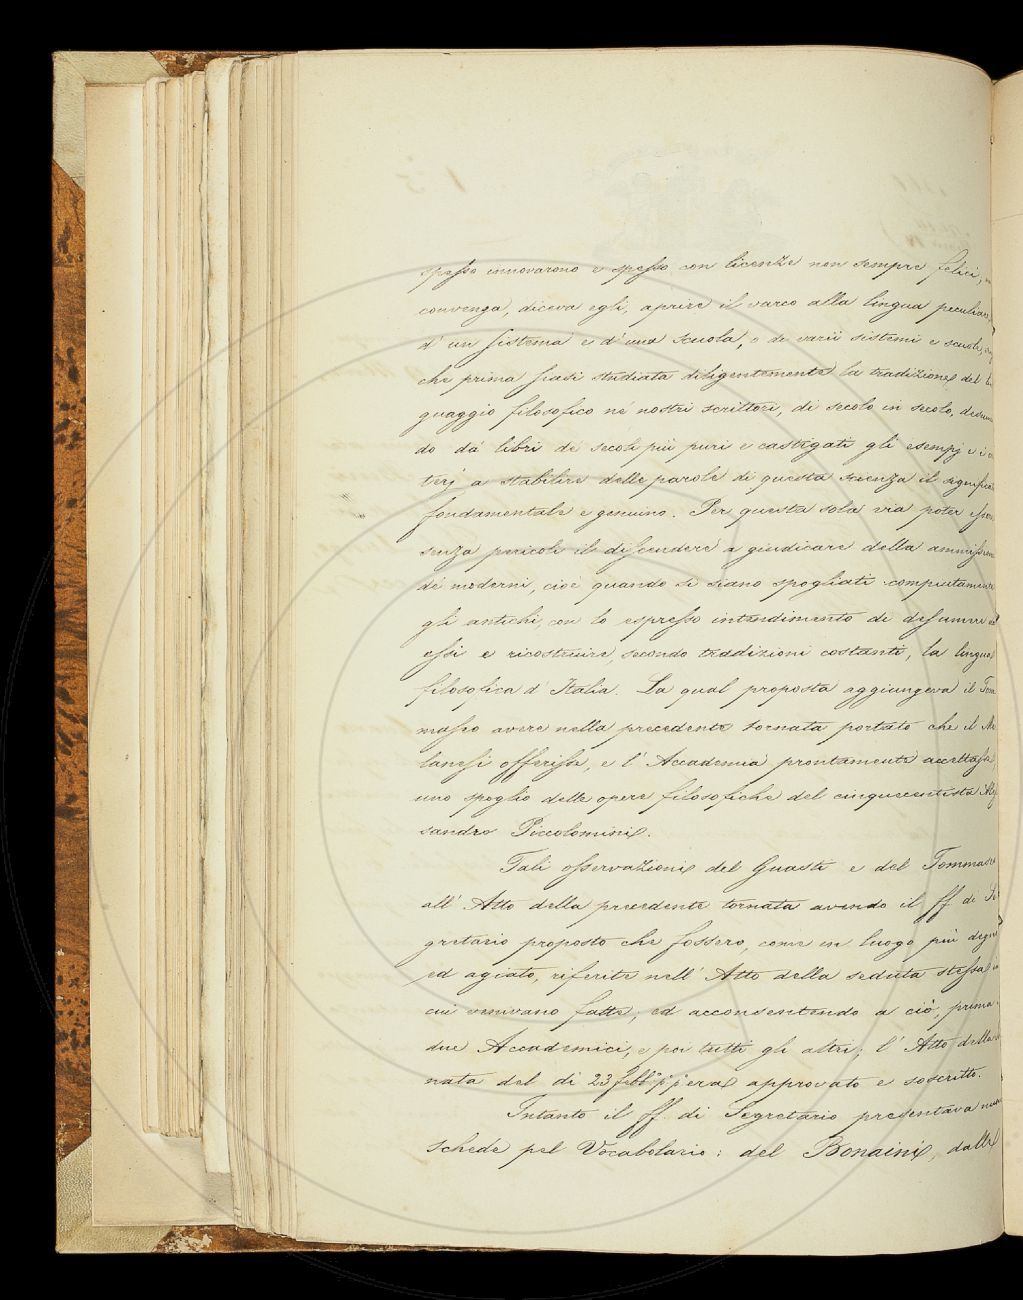 spesso innovarono e spesso con licenze non sempre felici,
convenga, diceva egli, aprire il varco alla lingua peculiare
d' un sistema e d' una scuola, o di varii sistemi e scuole,
che prima siasi studiata diligentemente la tradizione del lin
guaggio filosofico ne' nostri scrittori, di secolo in secolo, desumen
do da' libri de' secoli più puri e castigati gli esempj e i cri
terj a stabilire delle parole di questa scienza il significato
fondamentale e genuino. Per questa sola via poter essere
senza pericoli il discendere a giudicare della ammissione
de' moderni, cioè quando si siano spogliati compiutamente
gli antichi, con lo espresso intendimento di desumere da
essi e ricostruire, secondo tradizioni costanti, la lingua
filosofica d' Italia. La qual proposta aggiungeva il Tom
maseo avere nella precedente tornata portato che il Mi
lanesi offerisse, e l' Accademia prontamente accettasse
uno spoglio delle opere filosofiche del cinquecentista Ales
sandro Piccolomini.
Tali osservazioni del Guasti e del Tommaseo
all' Atto della precedente tornata avendo il ff. di Se
gretario proposto che fossero, come in luogo più degno
ed agiato, riferite nell' Atto della seduta stessa in
cui venivano fatte, ed acconsentendo a ciò, prima i
due Accademici, e poi tutti gli altri; l' Atto della
nata del dì 23 febb.° p.° p.° era approvato e soscritto.
Intanto il ff. di Segretario presentava nuove
schede pel Vocabolario: del Bonaini, dalle